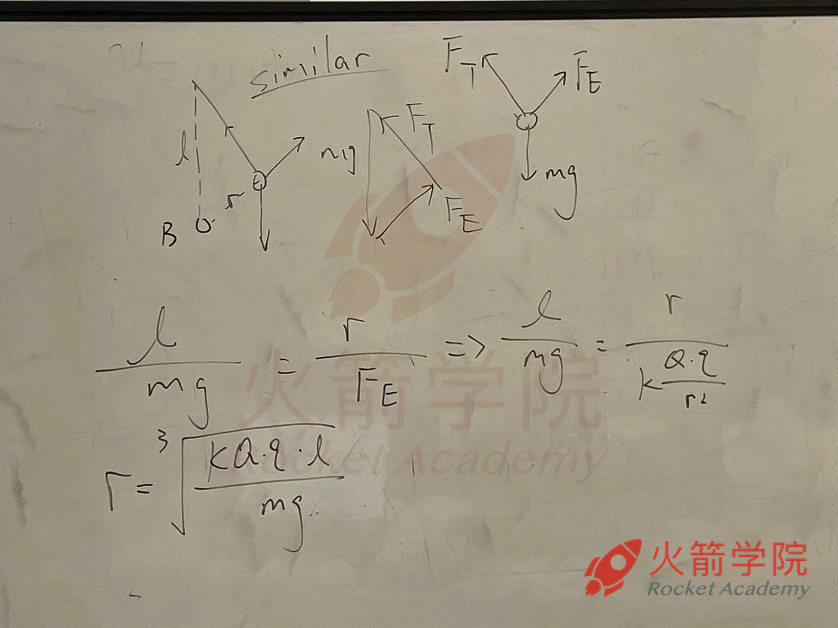 similar
F_T
F_E
l
r
B
mg
F_T
F_E
mg
l/mg = r/F_E => l/mg = r/(k Q·q/r²)
r = ∛(kQ·q·l/mg)
火箭学院
Rocket Academy
火箭学院
Rocket Academy